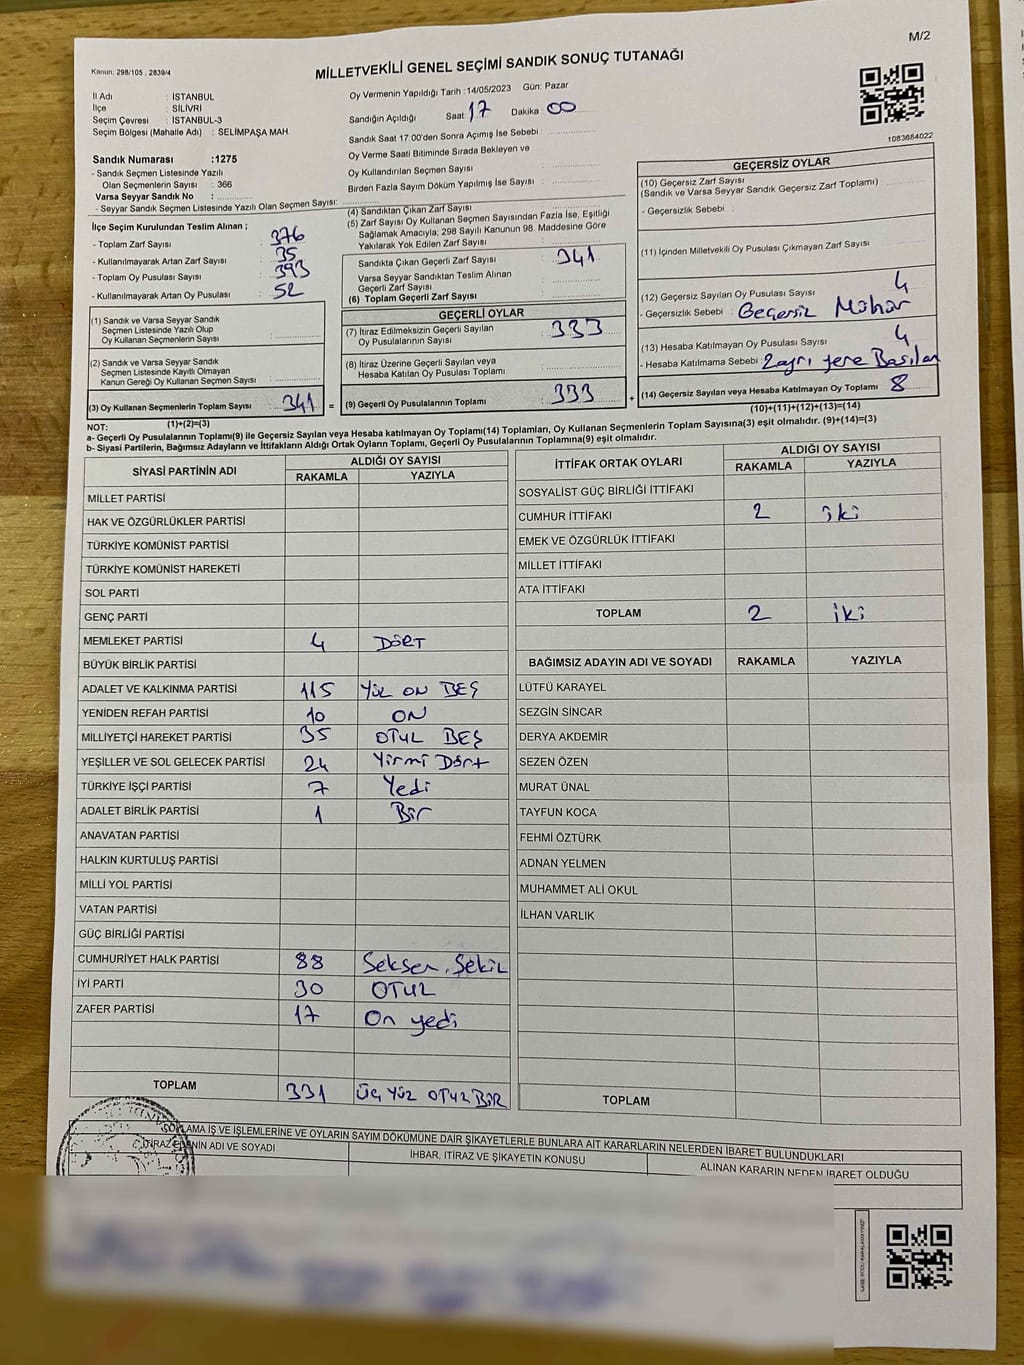 M/2
Kanun: 298/105 , 2839/4
MİLLETVEKİLİ GENEL SEÇİMİ SANDIK SONUÇ TUTANAĞI
İl Adı : İSTANBUL
İlçe : SİLİVRİ
Seçim Çevresi : İSTANBUL-3
Seçim Bölgesi (Mahalle Adı) : SELİMPAŞA MAH.
Oy Vermenin Yapıldığı Tarih : 14/05/2023 Gün: Pazar
Sandığın Açıldığı Saat : 17 Dakika : 00
Sandık Saat 17:00'den Sonra Açımış İse Sebebi :
Oy Verme Saati Bitiminde Sırada Bekleyen ve
Oy Kullandırılan Seçmen Sayısı :
Birden Fazla Sayım Döküm Yapılmış İse Sayısı :
1083684022
Sandık Numarası : 1275
- Sandık Seçmen Listesinde Yazılı
Olan Seçmenlerin Sayısı : 366
Varsa Seyyar Sandık No :
- Seyyar Sandık Seçmen Listesinde Yazılı Olan Seçmen Sayısı:
İlçe Seçim Kurulundan Teslim Alınan ;
- Toplam Zarf Sayısı : 376
- Kullanılmayarak Artan Zarf Sayısı : 35
- Toplam Oy Pusulası Sayısı : 393
- Kullanılmayarak Artan Oy Pusulası : 52
(1) Sandık ve Varsa Seyyar Sandık
Seçmen Listesinde Yazılı Olup
Oy Kullanan Seçmenlerin Sayısı :
(2) Sandık ve Varsa Seyyar Sandık
Seçmen Listesinde Kayıtlı Olmayan
Kanun Gereği Oy Kullanan Seçmen Sayısı :
(3) Oy Kullanan Seçmenlerin Toplam Sayısı : 341 =
(1)+(2)=(3)
(4) Sandıktan Çıkan Zarf Sayısı :
(5) Zarf Sayısı Oy Kullanan Seçmen Sayısından Fazla İse, Eşitliği
Sağlamak Amacıyla; 298 Sayılı Kanunun 98. Maddesine Göre
Yakılarak Yok Edilen Zarf Sayısı :
Sandıkta Çıkan Geçerli Zarf Sayısı : 341
Varsa Seyyar Sandıktan Teslim Alınan
Geçerli Zarf Sayısı :
(6) Toplam Geçerli Zarf Sayısı :
GEÇERLİ OYLAR
(7) İtiraz Edilmeksizin Geçerli Sayılan
Oy Pusulalarının Sayısı : 333
(8) İtiraz Üzerine Geçerli Sayılan veya
Hesaba Katılan Oy Pusulası Toplamı :
(9) Geçerli Oy Pusulalarının Toplamı : 333 +
GEÇERSİZ OYLAR
(10) Geçersiz Zarf Sayısı
(Sandık ve Varsa Seyyar Sandık Geçersiz Zarf Toplamı) :
- Geçersizlik Sebebi :
(11) İçinden Milletvekili Oy Pusulası Çıkmayan Zarf Sayısı :
(12) Geçersiz Sayılan Oy Pusulası Sayısı : 4
- Geçersizlik Sebebi : Geçersiz Mühür
(13) Hesaba Katılmayan Oy Pusulası Sayısı : 4
- Hesaba Katılmama Sebebi : 2 ayrı yere Basılan
(14) Geçersiz Sayılan veya Hesaba Katılmayan Oy Toplamı : 8
(10)+(11)+(12)+(13)=(14)
NOT:
a- Geçerli Oy Pusulalarının Toplamı(9) ile Geçersiz Sayılan veya Hesaba katılmayan Oy Toplamı(14) Toplamları, Oy Kullanan Seçmenlerin Toplam Sayısına(3) eşit olmalıdır. (9)+(14)=(3)
b- Siyasi Partilerin, Bağımsız Adayların ve İttifakların Aldığı Ortak Oyların Toplamı, Geçerli Oy Pusulalarının Toplamına(9) eşit olmalıdır.
SİYASİ PARTİNİN ADI ALDIĞI OY SAYISI
RAKAMLA YAZIYLA
MİLLET PARTİSİ
HAK VE ÖZGÜRLÜKLER PARTİSİ
TÜRKİYE KOMÜNİST PARTİSİ
TÜRKİYE KOMÜNİST HAREKETİ
SOL PARTİ
GENÇ PARTİ
MEMLEKET PARTİSİ 4 DÖRT
BÜYÜK BİRLİK PARTİSİ
ADALET VE KALKINMA PARTİSİ 115 YÜZ ON BEŞ
YENİDEN REFAH PARTİSİ 10 ON
MİLLİYETÇİ HAREKET PARTİSİ 35 OTUZ BEŞ
YEŞİLLER VE SOL GELECEK PARTİSİ 24 Yirmi Dört
TÜRKİYE İŞÇİ PARTİSİ 7 Yedi
ADALET BİRLİK PARTİSİ 1 Bir
ANAVATAN PARTİSİ
HALKIN KURTULUŞ PARTİSİ
MİLLİ YOL PARTİSİ
VATAN PARTİSİ
GÜÇ BİRLİĞİ PARTİSİ
CUMHURİYET HALK PARTİSİ 88 Seksen Sekiz
İYİ PARTİ 30 OTUZ
ZAFER PARTİSİ 17 On yedi
TOPLAM 331 ÜÇ YÜZ OTUZ BİR
İTTİFAK ORTAK OYLARI ALDIĞI OY SAYISI
RAKAMLA YAZIYLA
SOSYALİST GÜÇ BİRLİĞİ İTTİFAKI
CUMHUR İTTİFAKI 2 iki
EMEK VE ÖZGÜRLÜK İTTİFAKI
MİLLET İTTİFAKI
ATA İTTİFAKI
TOPLAM 2 iki
BAĞIMSIZ ADAYIN ADI VE SOYADI RAKAMLA YAZIYLA
LÜTFÜ KARAYEL
SEZGİN SİNCAR
DERYA AKDEMİR
SEZEN ÖZEN
MURAT ÜNAL
TAYFUN KOCA
FEHMİ ÖZTÜRK
ADNAN YELMEN
MUHAMMET ALİ OKUL
İLHAN VARLIK
TOPLAM
OYLAMA İŞ VE İŞLEMLERİNE VE OYLARIN SAYIM DÖKÜMÜNE DAİR ŞİKAYETLERLE BUNLARA AİT KARARLARIN NELERDEN İBARET BULUNDUKLARI
İTİRAZ EDENİN ADI VE SOYADI İHBAR, İTİRAZ VE ŞİKAYETİN KONUSU ALINAN KARARIN NEDEN İBARET OLDUĞU